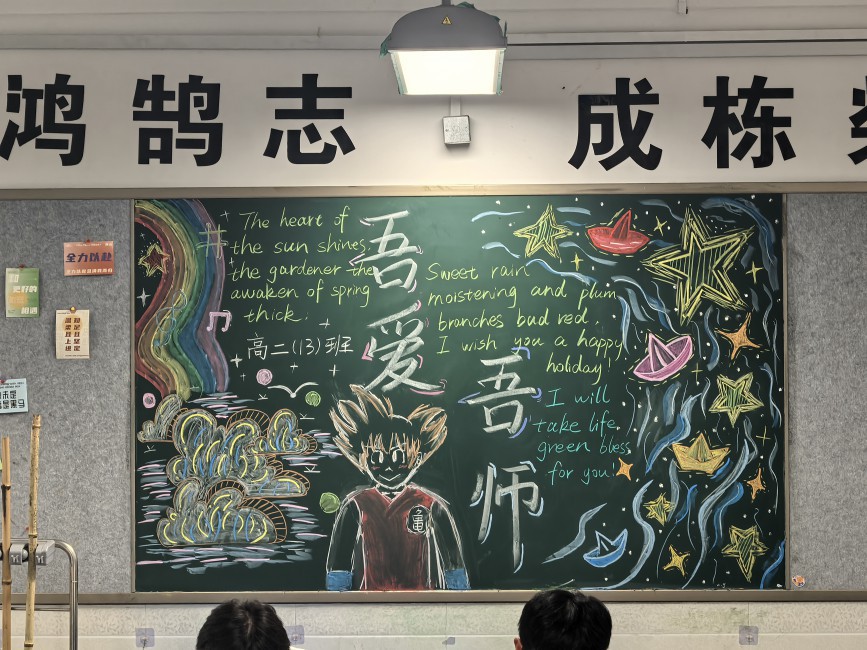 鸿鹄志 成栋
全力以赴
The heart of
the sun shines.
the gardener the
awaken of spring
thick.
高二(13)班
吾爱
吾师
Sweet rain
moistening and plum
branches bud red.
I wish you a happy
holiday!
I will
take life
green bless
for you!